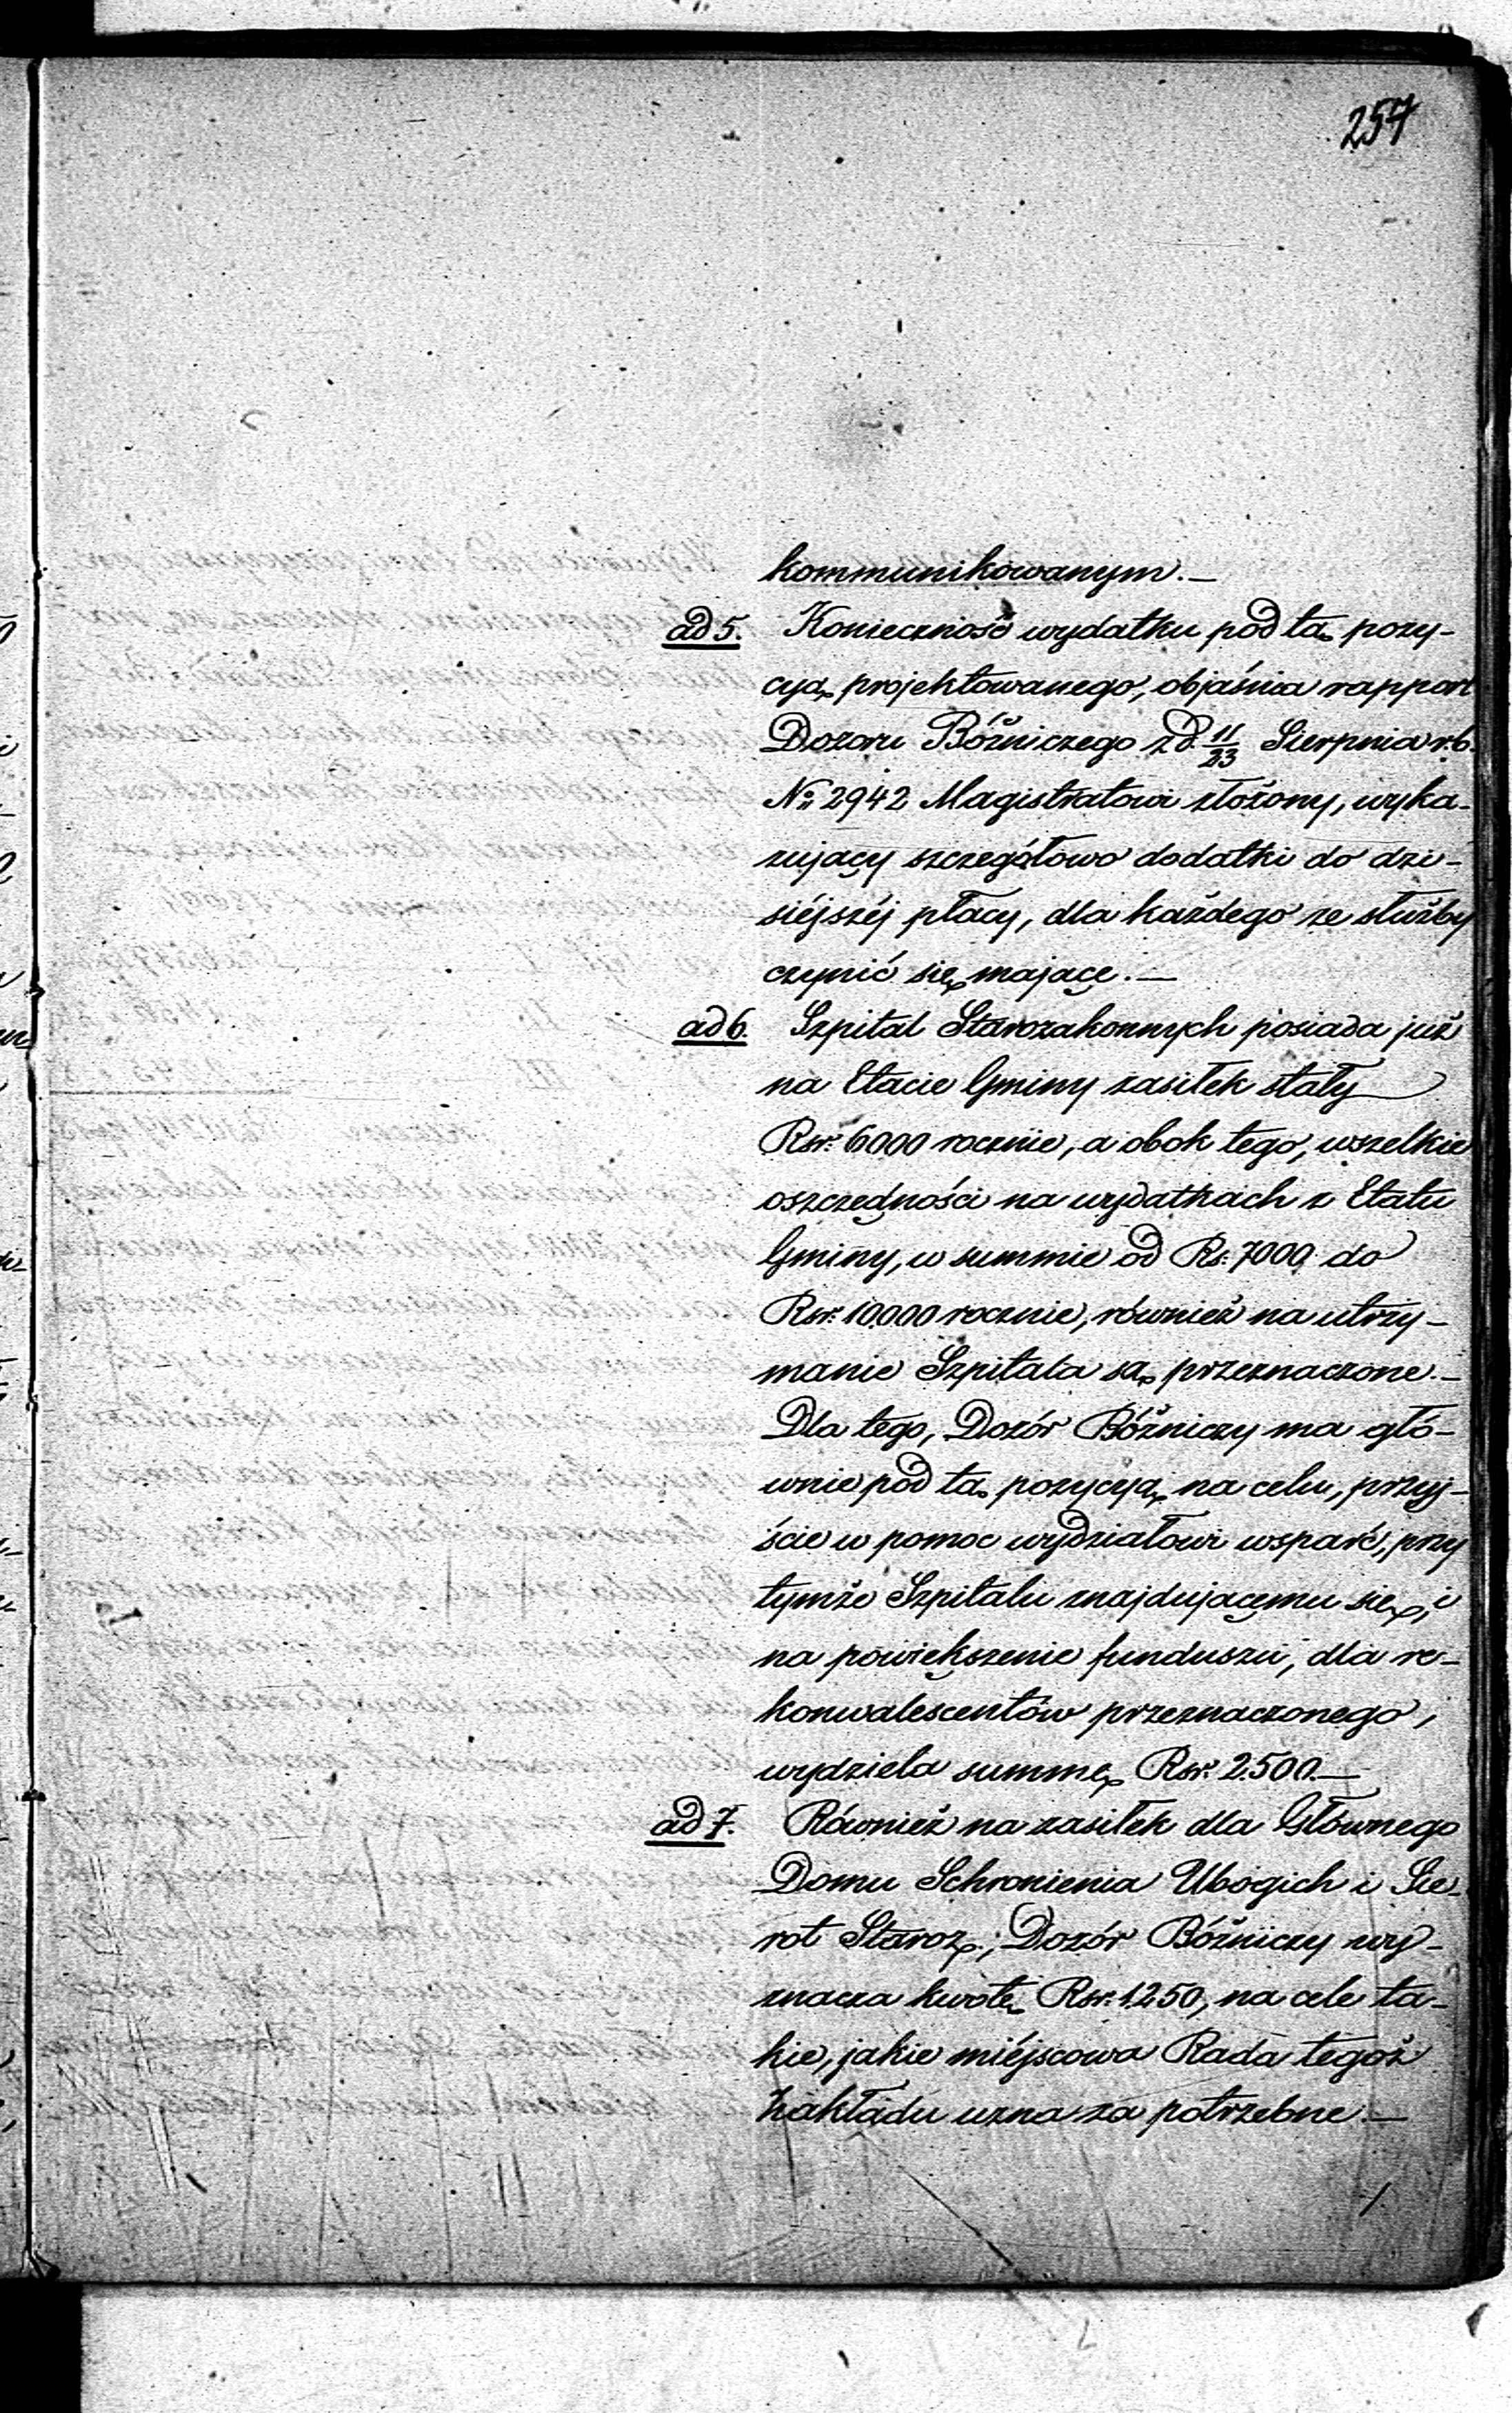 257
kommunikowanym.—
ad 5. Konieczność wydatku pod tą pozy-
cyą projektowanego, objaśnia rapport
Dozoru Bóżniczego z d. 11/23 Sierpnia r.b.
№ 2942 Magistratowi złożony, wyka-
zujący szczegółowo dodatki do dzi-
siéjszéj płacy, dla każdego ze służby
czynić się mające.—
ad 6. Szpital Starozakonnych posiada już
na Etacie Gminy zasiłek stały
Rsr. 6000 rocznie, a obok tego, wszelkie
oszczędności na wydatkach z Etatu
Gminy, w summie od Rs. 7000 do
Rsr. 10.000 rocznie, również na utrzy-
manie Szpitala są przeznaczone.—
Dla tego, Dozór Bóżniczy ma głó-
wnie pod tą pozycyą na celu, przyj-
ście w pomoc wydziałowi wsparć, przy
tymże Szpitalu znajdującemu się, i
na powiększenie funduszu, dla re-
konwalescentów przeznaczonego,
wydziela summę Rsr. 2.500.—
ad 7. Również na zasiłek dla Głównego
Domu Schronienia Ubogich i Sie-
rot Staroz.; Dozór Bóżniczy wy-
znacza kwotę Rsr. 1.250, na cele ta-
kie, jakie miéjscowa Rada tegoż
Zakładu uzna za potrzebne.—